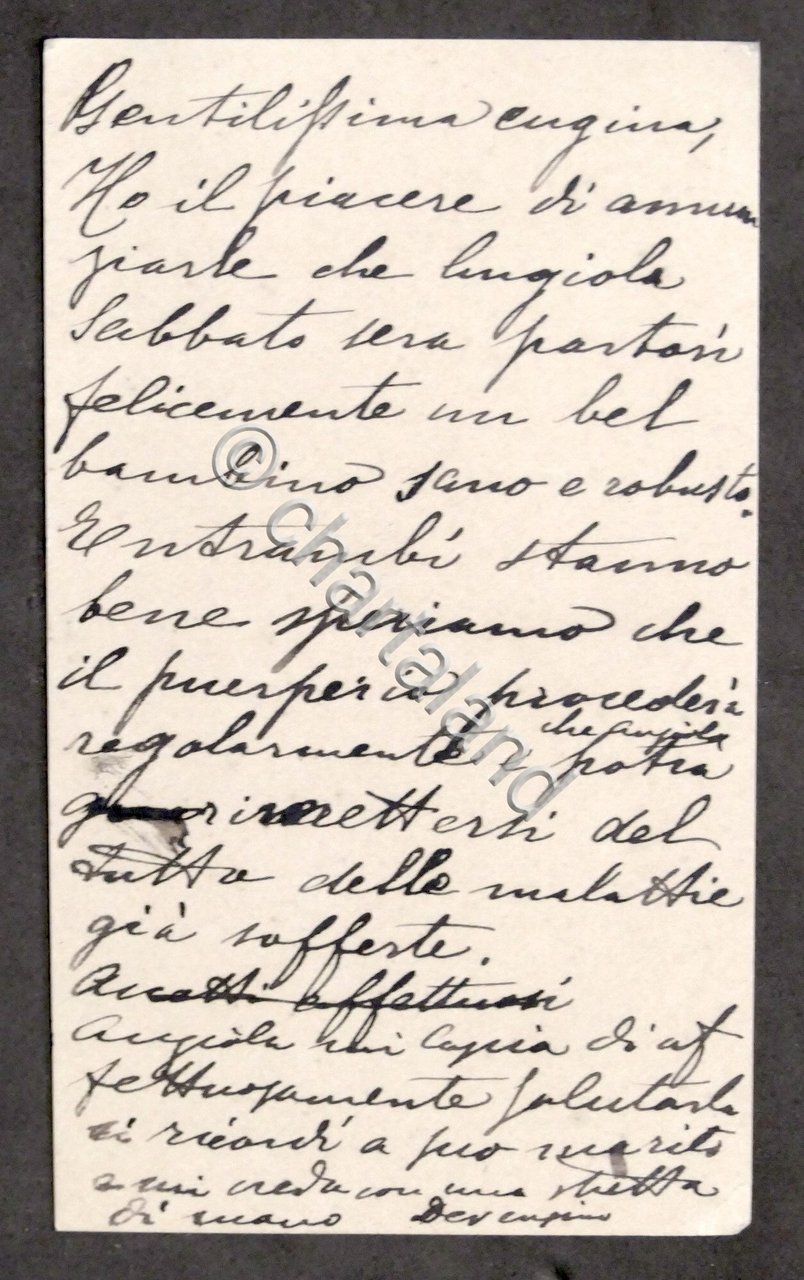 Gentilissima cugina,
Ho il piacere di annun
ziarle che Angiola
Sabbato sera partorì
felicemente un bel
bambino sano e robusto.
Entrambi stanno
bene speriamo che
il puerperio procederà
regolarmente e che Angiola potrà
rimettersi del
tutto delle malattie
già sofferte.
Accetti affettuosi
Angiola mi di af
fettuosamente salutarla
si ricordi a suo marito
e mi creda con una stretta
di mano Dev cugino
© chartaland